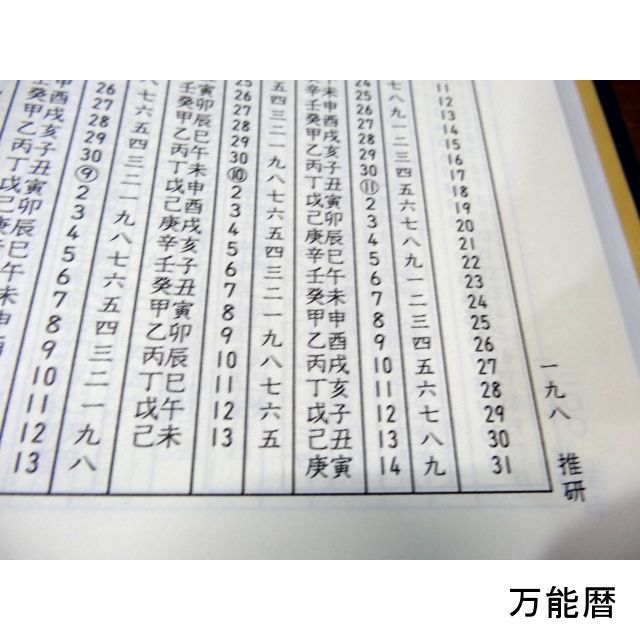 11 12 13 14 15 16 17 18 19 20 21 22 23 24 25 26 27 28 29 30 31
七八九一二三四五六七八九一二三四五六七八九
24 25 26 27 28 29 30 ⑪ 2 3 4 5 6 7 8 9 10 11 12 13 14
辛未 壬申 癸酉 甲戌 乙亥 丙子 丁丑 戊寅 己卯 庚辰 辛巳 壬午 癸未 甲申 乙酉 丙戌 丁亥 戊子 己丑 庚寅
五四三二一九八七六五四三二一九八七六五
25 26 27 28 29 30 ⑩ 2 3 4 5 6 7 8 9 10 11 12 13
壬寅 癸卯 甲辰 乙巳 丙午 丁未 戊申 己酉 庚戌 辛亥 壬子 癸丑 甲寅 乙卯 丙辰 丁巳 戊午 己未
七六五四三二一九八七六五四三二一九八
26 27 28 29 30 ⑨ 2 3 4 5 6 7 8 9 10 11 12 13
癸酉 甲戌 乙亥 丙子 丁丑 戊寅 己卯
一九八 推研
万能暦